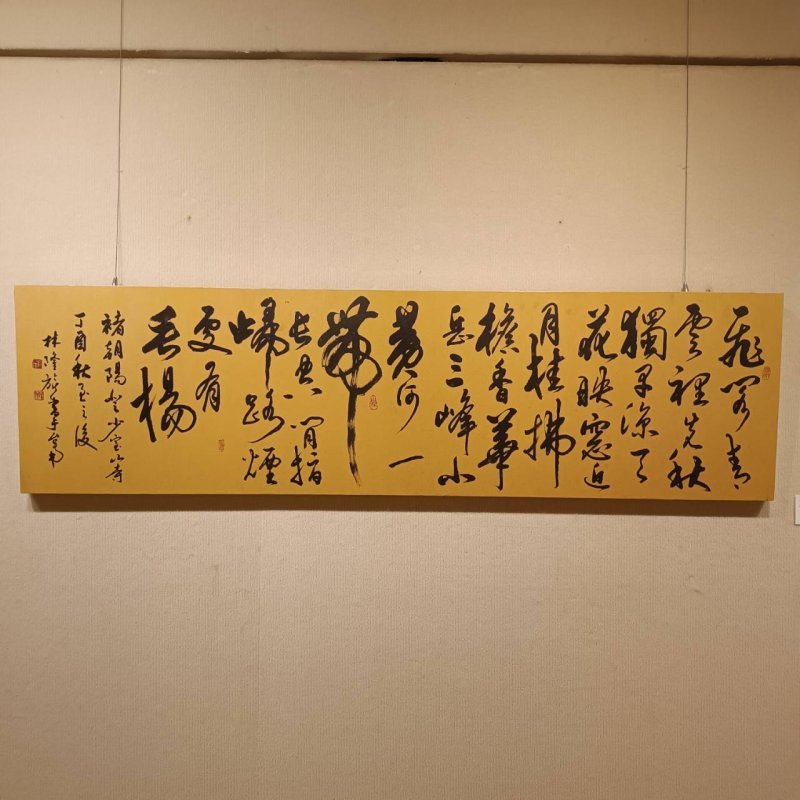 飛閣青
雲裡先秋
獨早涼天
花映窗近
月桂拂
檐香華
岳三峰小
黃河一
帶
長空間指
歸路煙
處有
垂楊
褚朝陽登少室山寺
丁酉秋至之後
林隆